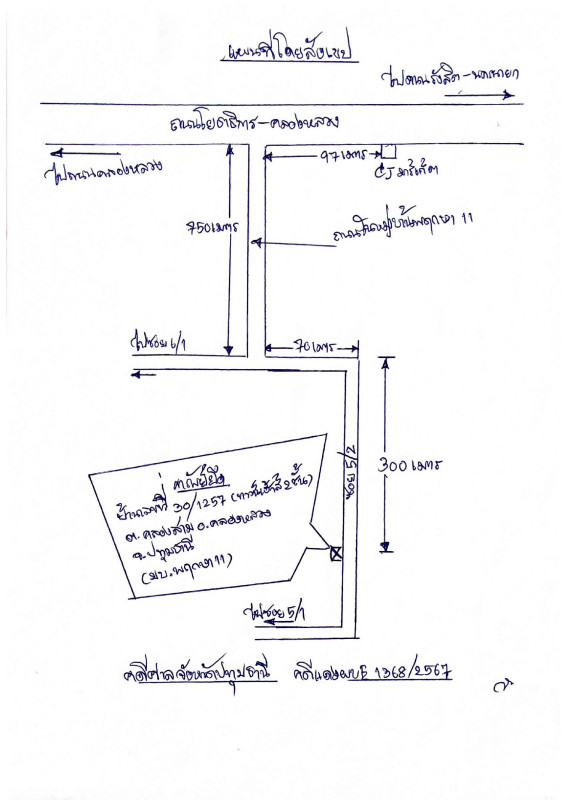 แผนที่โดยสังเขป
ไปถนนรังสิต-นครนายก
ถนนโยธาธิการ-คลองหลวง
ไปถนนคลองหลวง
97 เมตร
CJ มาร์เก็ต
750 เมตร
ถนนในหมู่บ้านพฤกษา 11
ไปซอย 6/1
70 เมตร
ซอย 5/2
300 เมตร
ทรัพย์ยึด
บ้านเลขที่ 30/1257 (ทาวน์เฮ้าส์ 2 ชั้น)
ต.คลองสาม อ.คลองหลวง
จ.ปทุมธานี
(มบ.พฤกษา 11)
ไปซอย 5/1
คดีศาลจังหวัดปทุมธานี คดีแดง ผบE 1368/2567